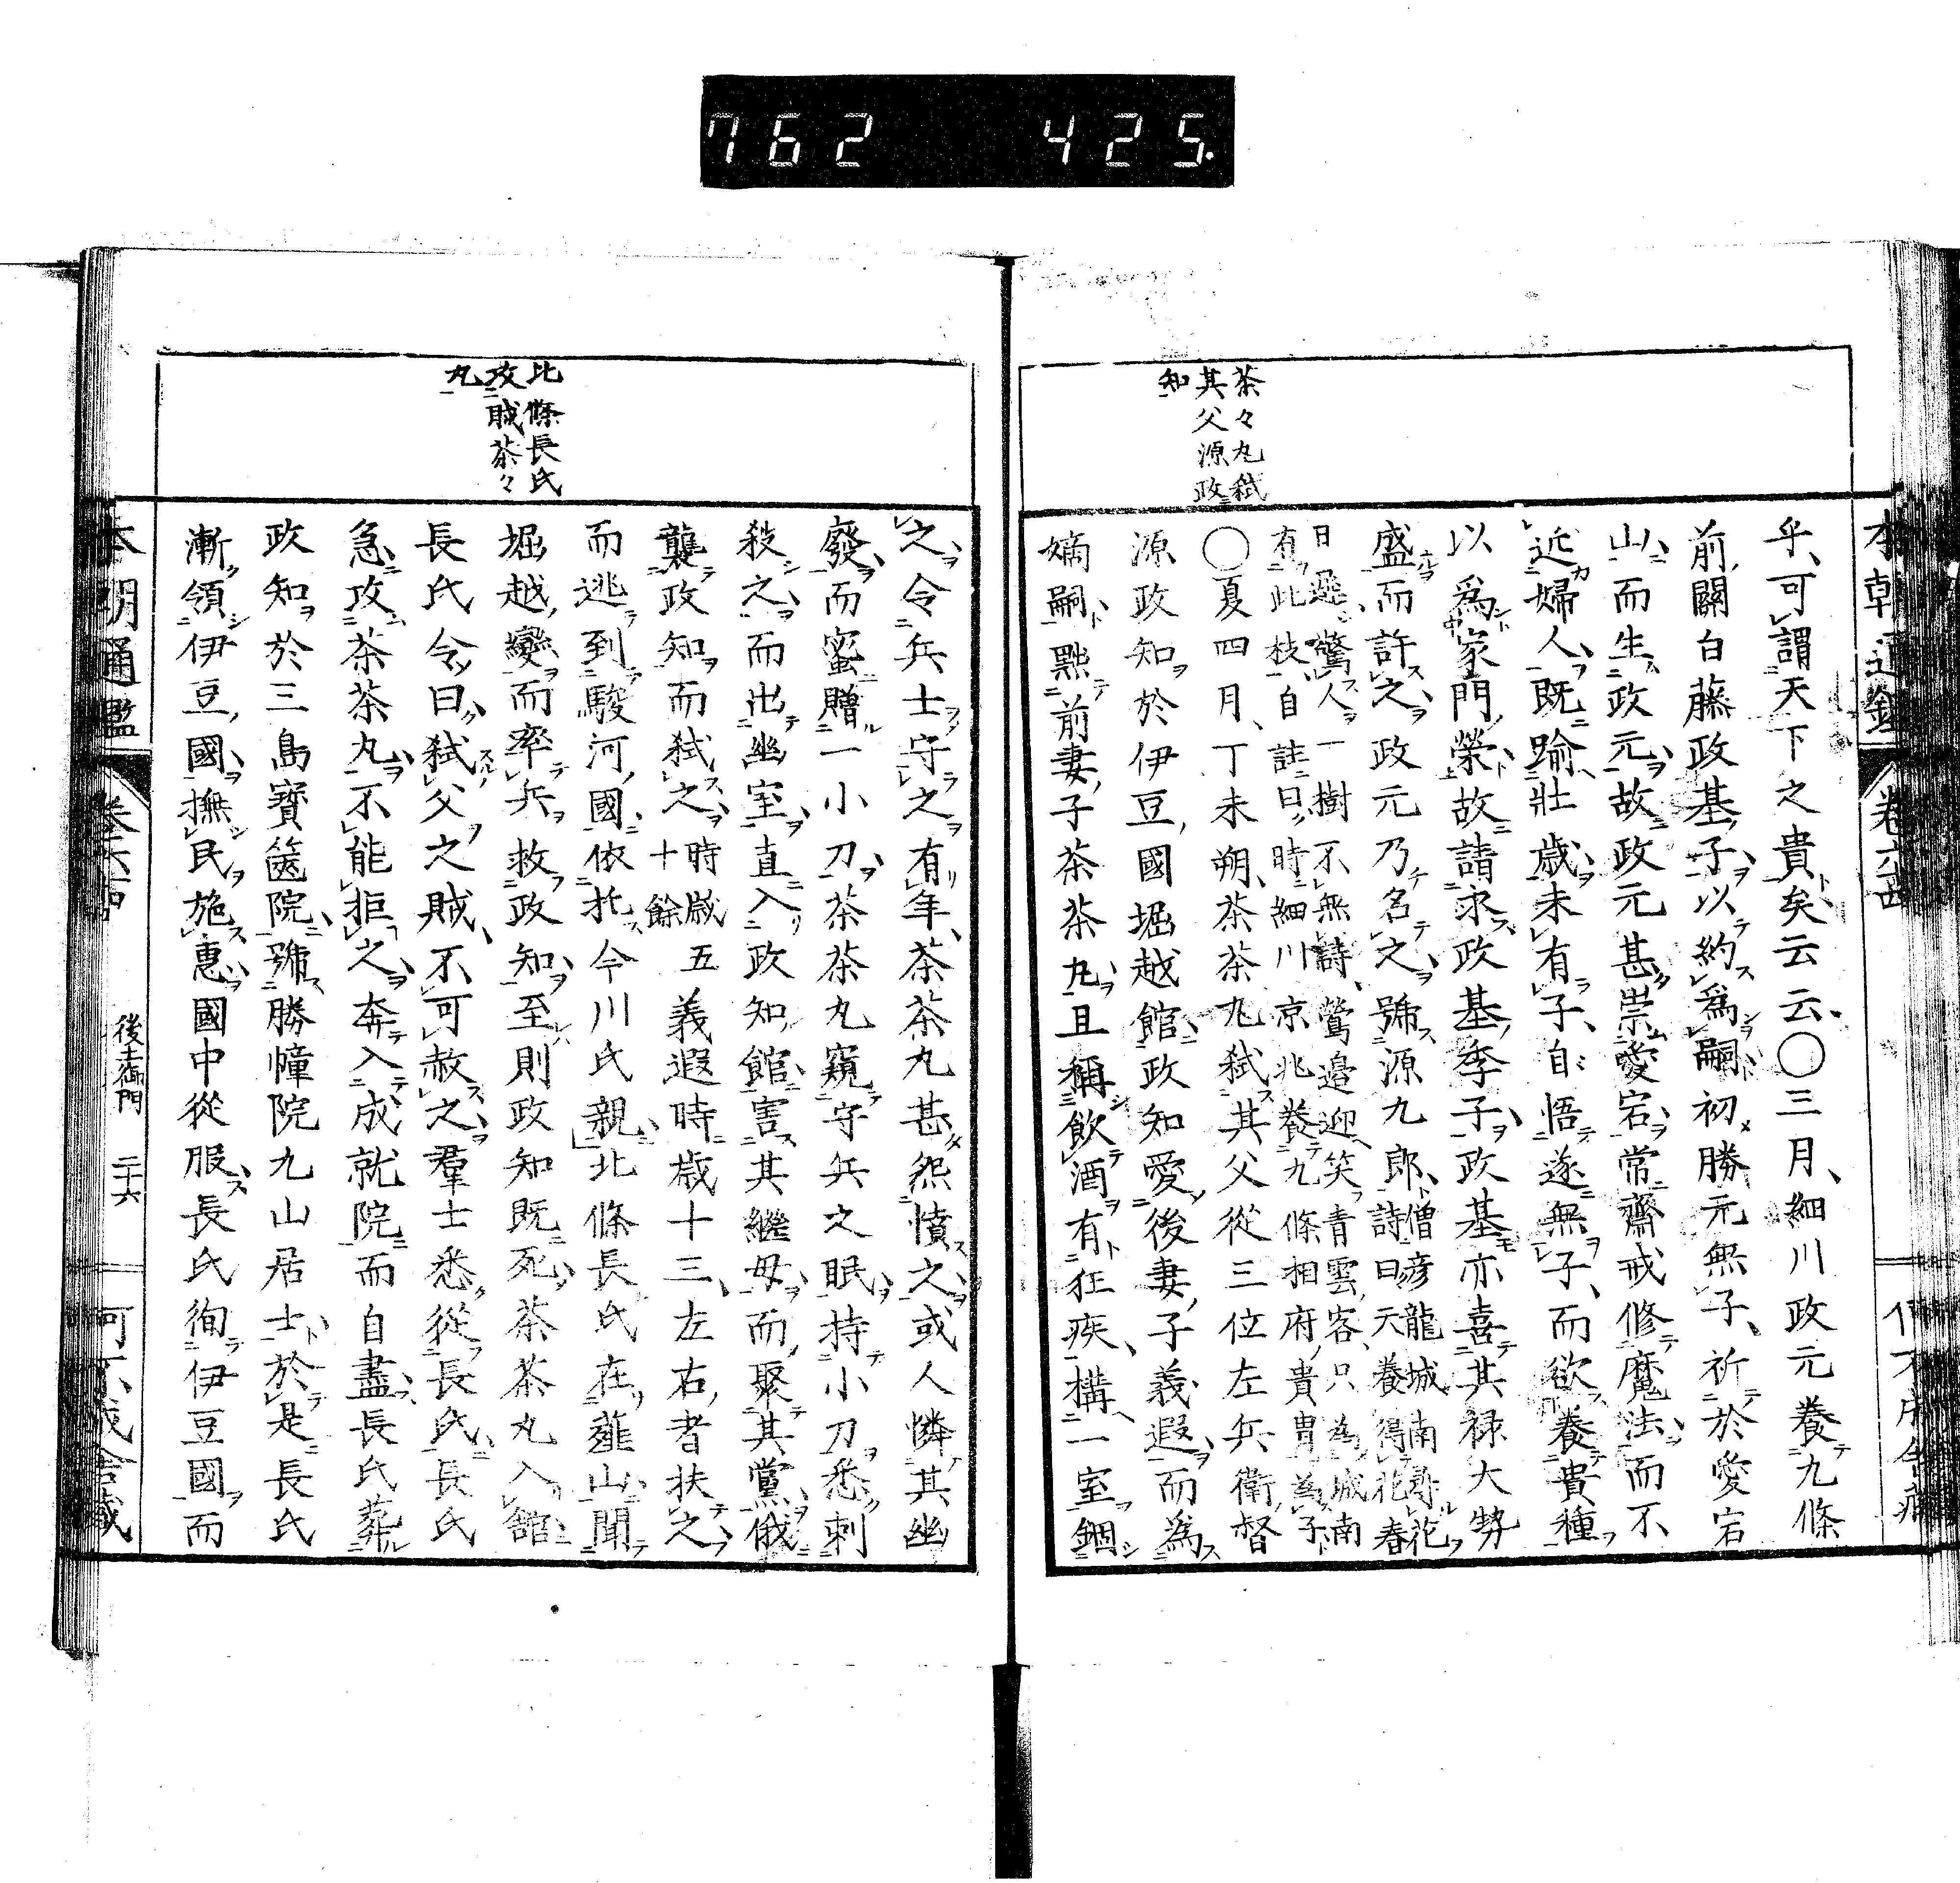 762 425.
本朝通鑑 卷六十四
茶々丸弑
其父源政
知
乎、可謂天下之貴矣云云〇三月、細川政元養九條
前關白藤政基子以約爲嗣初勝元無子、祈於愛宕
山而生政元故政元甚崇愛宕常齋戒修魔法而不
近婦人既踰壯歳未有子、自悟遂無子、而欲養貴種
以爲家門榮故請求政基季子政基亦喜其禄大勢
盛而許之政元乃名之號源九郎僧彦龍城南尋花
詩曰天養得花春
日遲驚人一樹不無詩鶯邉迎笑青雲客只為城南
有此枝自註曰時細川京兆養九條相府貴冑為子
〇夏四月、丁未朔、茶茶丸弑其父從三位左兵衛督
源政知於伊豆國堀越館政知愛後妻子義遐而為
嫡嗣黜前妻子茶茶丸且稱飲酒有狂疾、構一室錮
北條長氏
攻賊茶々
丸
之令兵士守之有年、茶茶丸甚怨憤之或人憐其幽
廢而蜜贈一小刀茶茶丸窺守兵之眠持小刀悉刺
殺之而出幽室直入政知館害其繼母而聚其黨俄
襲政知而弑之時歳五
十餘義遐時歳十三、左右者扶之
而逃到駿河國依托今川氏親北條長氏在韮山聞
堀越變而率兵救政知至則政知既死茶茶丸入館
長氏令曰弑父之賊、不可赦之羣士悉從長氏長氏
急攻茶茶丸不能拒之奔入成就院而自盡長氏葬
政知於三島寳篋院號勝幢院九山居士於是長氏
漸領伊豆國撫民施惠國中從服長氏徇伊豆國而
本朝通鑑 卷六十四 後土御門 二十六